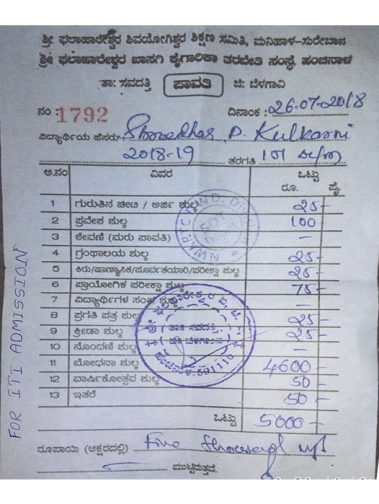 ಶ್ರೀ ಫಲಾಹಾರೇಶ್ವರ ಶಿವಯೋಗಿಶ್ವರ ಶಿಕ್ಷಣ ಸಮಿತಿ, ಮನಿಹಾಳ-ಸುರೇಬಾನ
ಶ್ರೀ ಫಲಾಹಾರೇಶ್ವರ ಖಾಸಗಿ ಕೈಗಾರಿಕಾ ತರಬೇತಿ ಸಂಸ್ಥೆ ಹಂಚಿನಾಳ
ತಾ: ಸವದತ್ತಿ ಪಾವತಿ ಜಿ: ಬೆಳಗಾವಿ
ನಂ 1792 ದಿನಾಂಕ : 26-07-2018
ವಿದ್ಯಾರ್ಥಿಯ ಹೆಸರು Shreedhar P. Kulkarni
2018-19 ತರಗತಿ
ಅ.ನಂ ವಿವರ ಒಟ್ಟು
ರೂ. ಪೈ
1 ಗುರುತಿನ ಚೀಟಿ / ಅರ್ಜಿ ಶುಲ್ಕ 25-
2 ಪ್ರವೇಶ ಶುಲ್ಕ 100-
3 ಠೇವಣಿ (ಮರು ಪಾವತಿ) -
4 ಗ್ರಂಥಾಲಯ ಶುಲ್ಕ 25-
5 ಕಿರು/ಷಾಣ್ಮಾಸಿಕ/ಪೂರ್ವತಯಾರಿ/ಪರೀಕ್ಷಾ ಶುಲ್ಕ 25-
6 ಪ್ರಾಯೋಗಿಕ ಪರೀಕ್ಷಾ ಶುಲ್ಕ 75-
7 ವಿದ್ಯಾರ್ಥಿಗಳ ಸಂಘ ಶುಲ್ಕ -
8 ಪ್ರಗತಿ ಪತ್ರ ಶುಲ್ಕ 25-
9 ಕ್ರೀಡಾ ಶುಲ್ಕ 25-
10 ನೊಂದಣಿ ಶುಲ್ಕ -
11 ಬೋಧನಾ ಶುಲ್ಕ 4600-
12 ವಾರ್ಷಿಕೋತ್ಸವ ಶುಲ್ಕ 50-
13 ಇತರೆ 50-
ಒಟ್ಟು 5000-
ರೂಪಾಯಿ (ಅಕ್ಷರದಲ್ಲಿ) Five thousand
ಮುಟ್ಟಿರುತ್ತವೆ.
FOR ITI ADMISSION
ತಾ॥ ಸವದತ್ತಿ.
ಜಿ॥ ಬೆಳಗಾವಿ